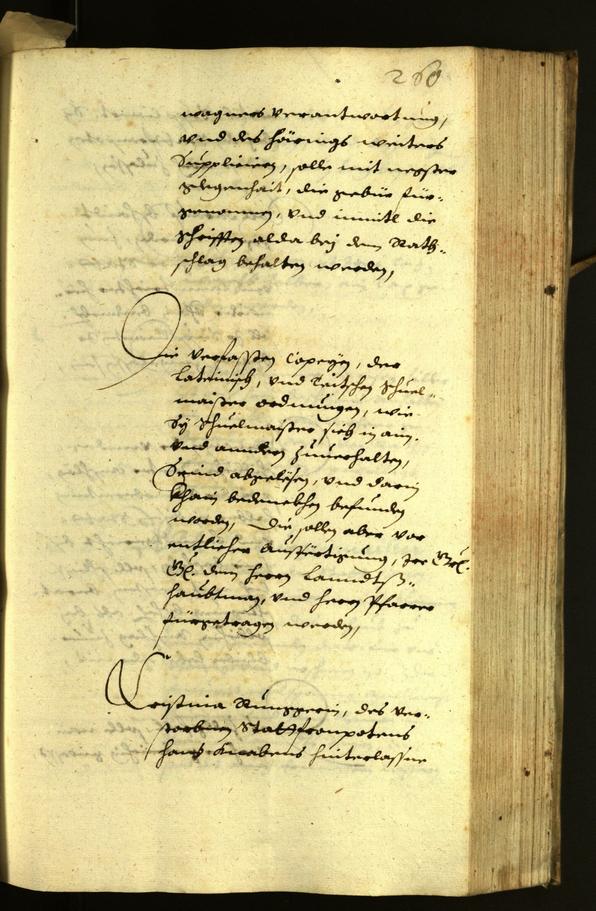 260
wagners verantwortung,
vnd des Härings weiters
Suppliciern, solle mit negster
gelegenhait, die gebür für-
genomen, vnd inmitl die
schrifften alda bej dem Rath-
schlag behalten werden,
Die verfassten Copeyen, der
Lateinisch, vnd Teitschen Schuel-
maister ordnungen, wie
Sy Schuelmaister sich in ain.
vnd anndern zuuerhalten,
Seind abgelesen, vnd darin
khain bedenckhen befunden
worden, Die sollen aber vor
entlicher ausfertigung, Jer
dem herrn Lanndtß-
haubtman, vnd herrn Pfarrer
fürgetragen werden,
Cristina Runggerin, des ver-
storbnen Stattfronpotens
Hans Knabens hinterlassne